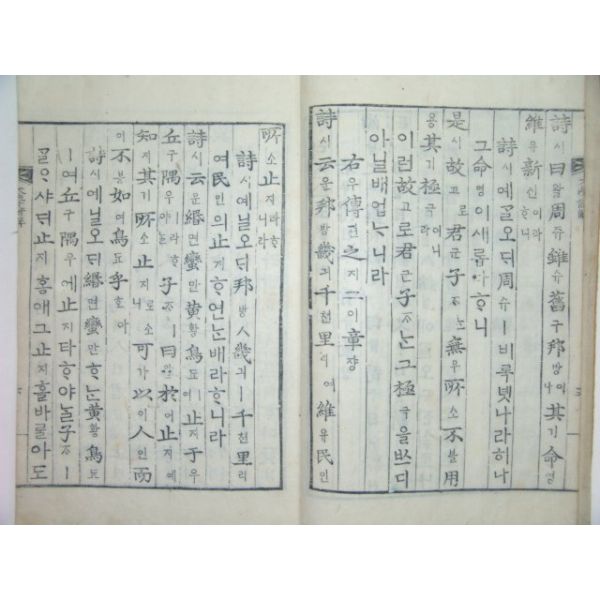 詩시曰왈周쥬雖슈舊구邦방이나其기命명
維유新신이라ᄒᆞ니
詩시예ᄀᆞᆯ오ᄃᆡ周쥬ㅣ비록녯나라히나
그命명이새롭다ᄒᆞ니
是시故고로君군子ᄌᆞᄂᆞᆫ無무所소不블用
용其기極극이니라
이런故고로君군子ᄌᆞᄂᆞᆫ그極극을ᄡᅳ디
아닐배업ᄂᆞ니라
右우傳뎐之지二이章쟝
詩시云운邦방畿긔千쳔里리여維유民민인
所소止지라ᄒᆞ니라
詩시예닐오ᄃᆡ邦방ㅅ畿긔ㅣ千쳔里리
여民민의止지ᄒᆞ연ᄂᆞᆫ배라ᄒᆞ니라
詩시云운緡면蠻만黃황鳥됴ㅣ여止지于우
丘구隅우ㅣ라ᄒᆞ야ᄂᆞᆯ子ᄌᆞㅣ曰왈於어止지예
知지其기所소止지로소니可가以이人인而
이不블如여鳥됴乎호아
詩시예닐오ᄃᆡ緡면蠻만ᄒᆞᄂᆞᆫ黃황鳥됴
ㅣ여丘구隅우에止지타ᄒᆞ야ᄂᆞᆯ子ᄌᆞㅣ
ᄀᆞᆯᄋᆞ샤ᄃᆡ止지홈애그止지ᄒᆞᆯ바ᄅᆞᆯ아도